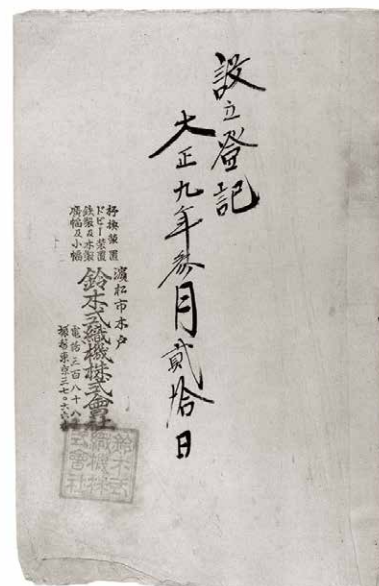 設立登記
大正九年参月貳拾日
杼換装置
ドビー装置
鉄製及木製
廣幅及小幅
濱松市木戸
鈴木式織機株式會社
電話三百八十八番
振替東京三七〇六六番
鈴木式
織機株
式會社